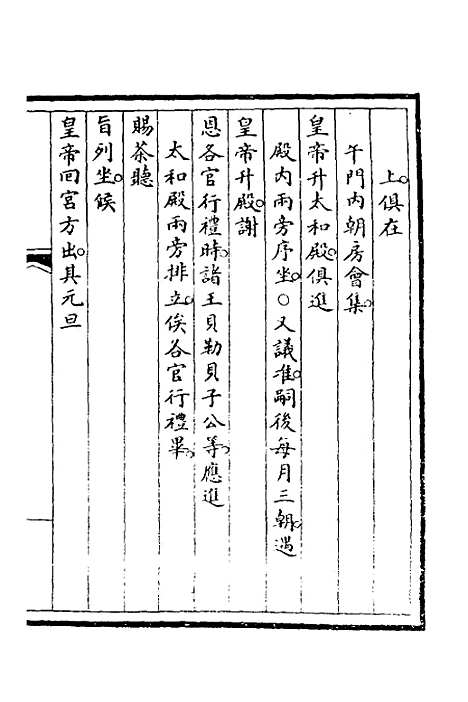 上。俱在
午門内朝房會集。
皇帝升太和殿。俱進
殿内兩旁序坐。○又議准。嗣後每月三朝。遇
皇帝升殿。謝
恩各官行禮時。諸王貝勒貝子公等。應進
太和殿兩旁排立。俟各官行禮畢。
賜茶聽
旨列坐。候
皇帝回宮方出。其元旦